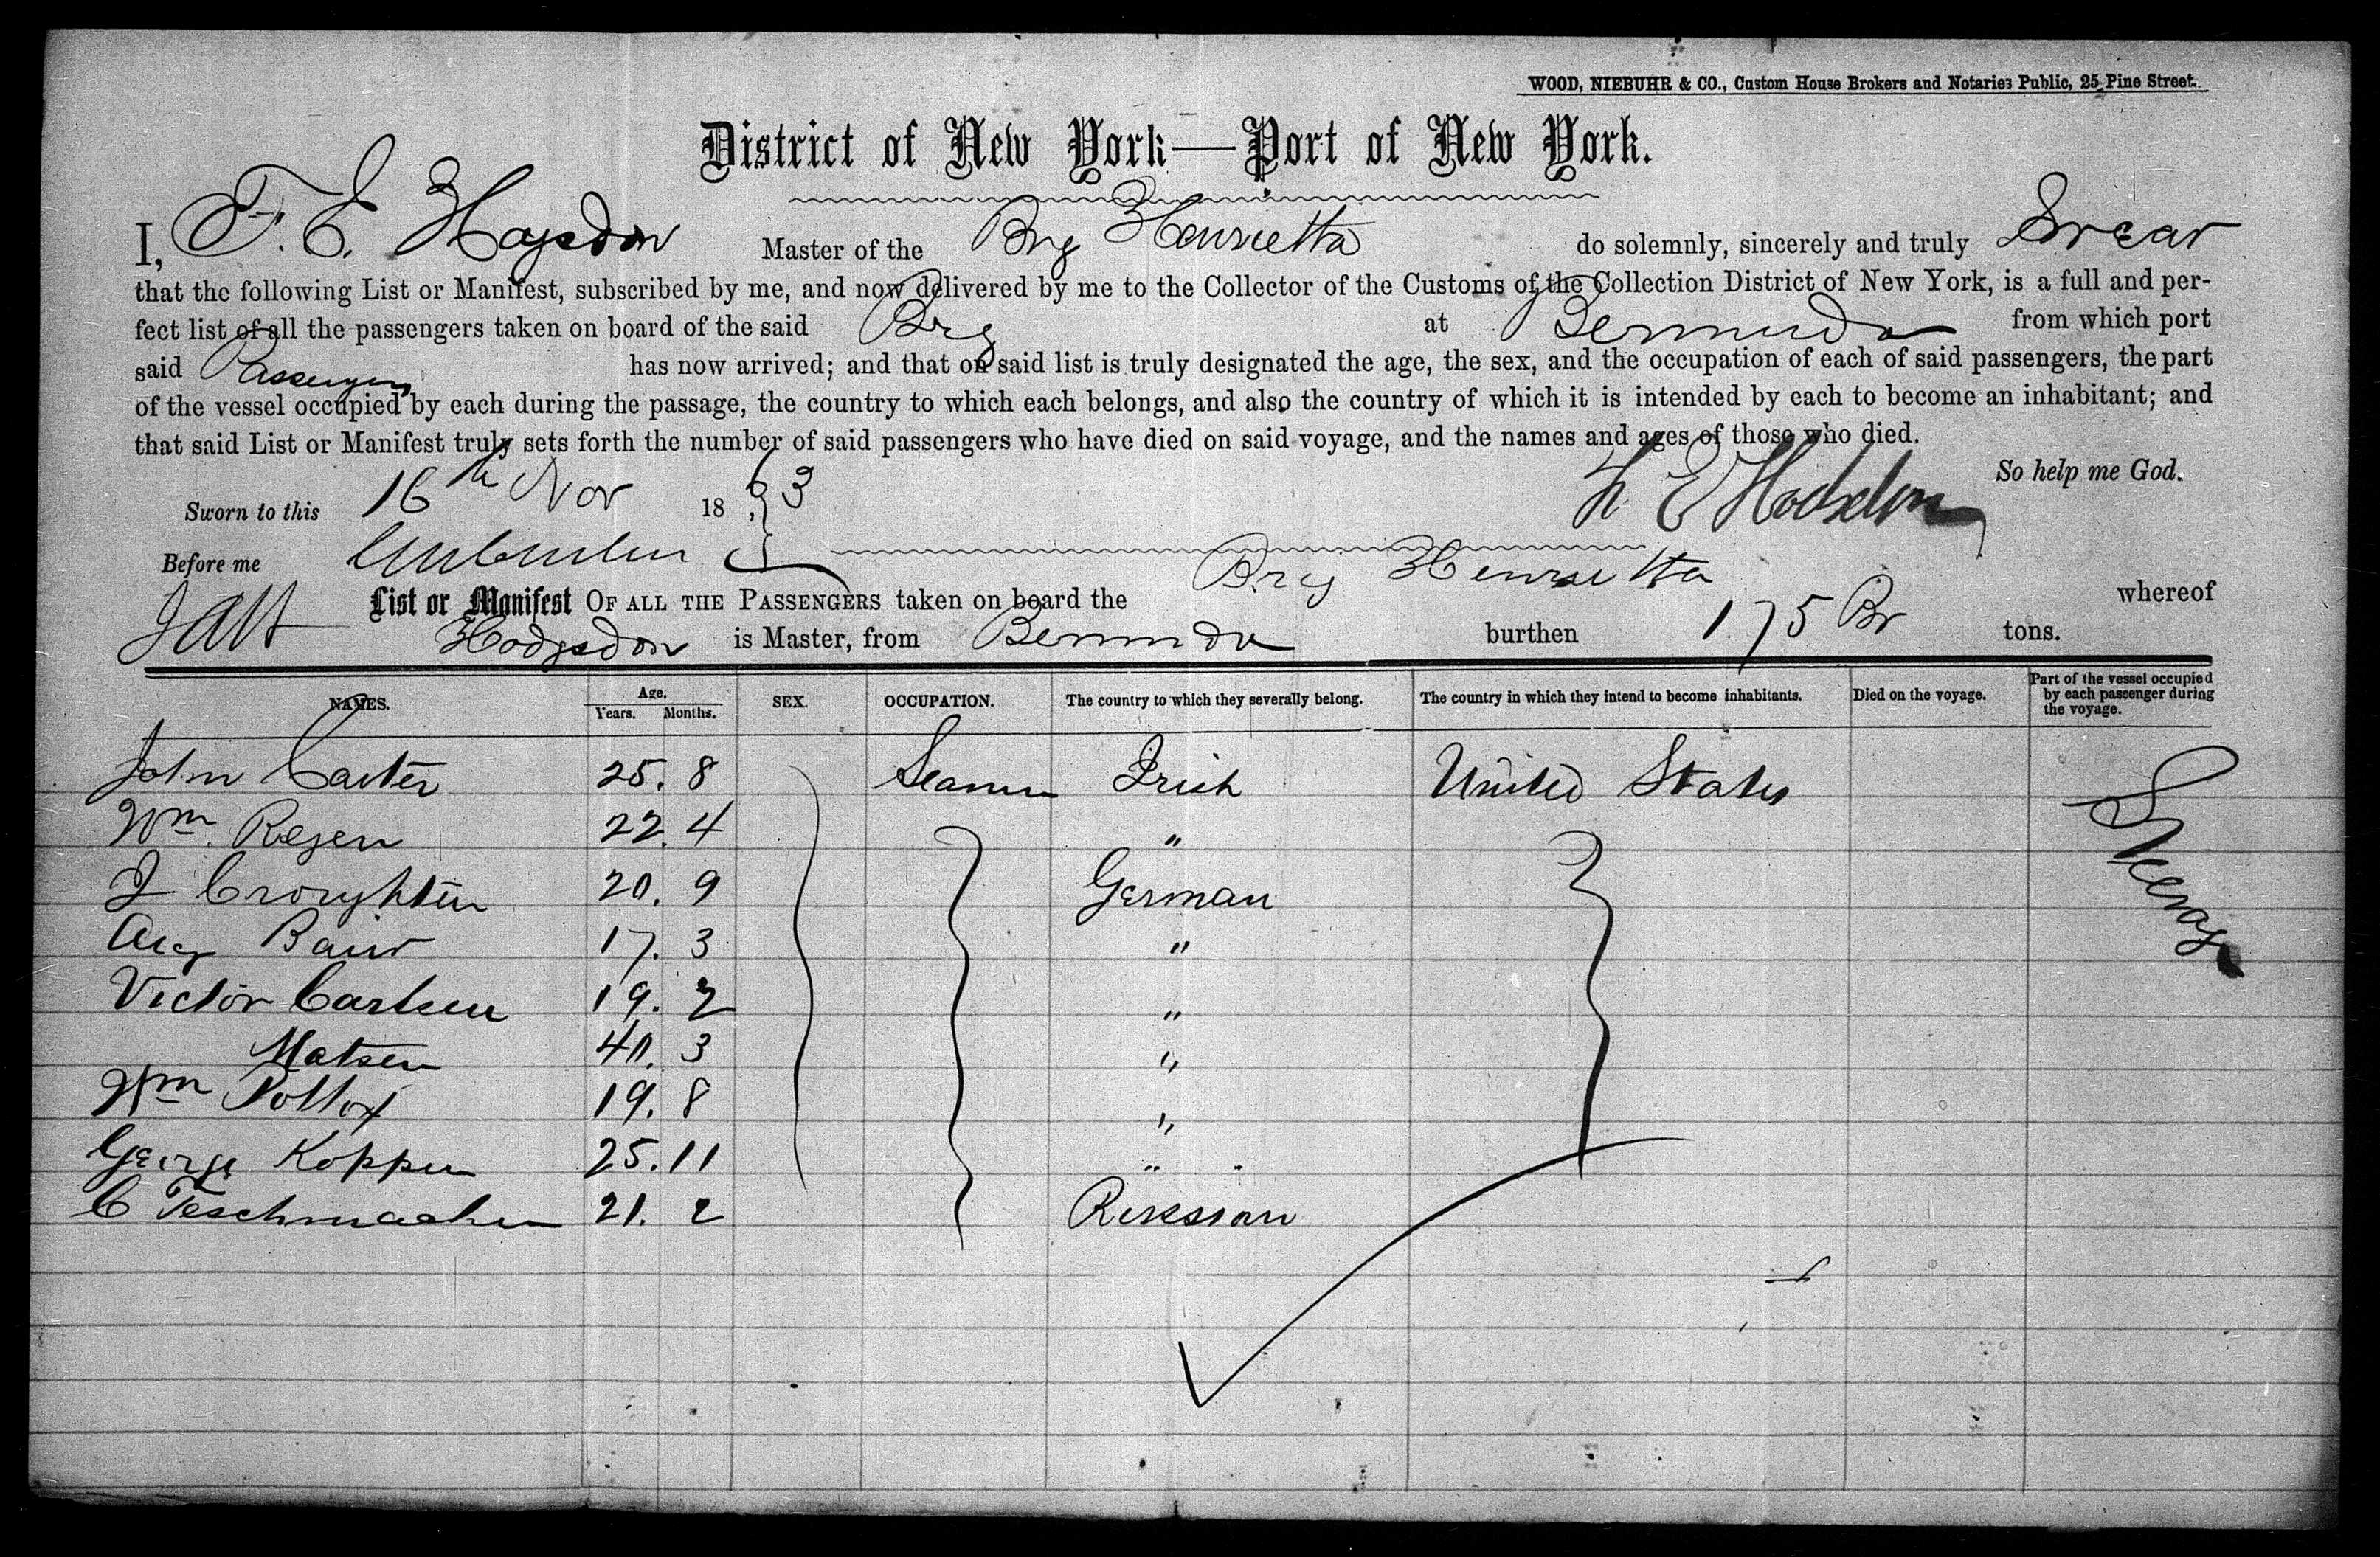 WOOD, NIEBUHR & CO., Custom House Brokers and Notaries Public, 25 Pine Street.
District of New York—Port of New York.
I, F. E. Hogsdon Master of the Brg Henrietta do solemnly, sincerely and truly Swear
that the following List or Manifest, subscribed by me, and now delivered by me to the Collector of the Customs of the Collection District of New York, is a full and per-
fect list of all the passengers taken on board of the said Brg at Bermuda from which port
said Passengers has now arrived; and that on said list is truly designated the age, the sex, and the occupation of each of said passengers, the part
of the vessel occupied by each during the passage, the country to which each belongs, and also the country of which it is intended by each to become an inhabitant; and
that said List or Manifest truly sets forth the number of said passengers who have died on said voyage, and the names and ages of those who died.
So help me God.
Sworn to this 16th Nov 1863 F E Hodsdon
Before me
List or Manifest OF ALL THE PASSENGERS taken on board the Brig Henrietta whereof
Hodgsdon is Master, from Bermuda burthen 175 Br tons.
NAMES. Age. Years. Months. SEX. OCCUPATION. The country to which they severally belong. The country in which they intend to become inhabitants. Died on the voyage. Part of the vessel occupied by each passenger during the voyage.
John Carter 25. 8 Seamen Irish United States Steerage
Wm. Regen 22. 4 "
J Croughten 20. 9 German
Aug Baur 17. 3 "
Victor Carlsen 19. 2 "
Matsen 40. 3 "
Wm Pollox 19. 8 "
George Koppen 25. 11 "
C Teschmacher 21. 2 Russian